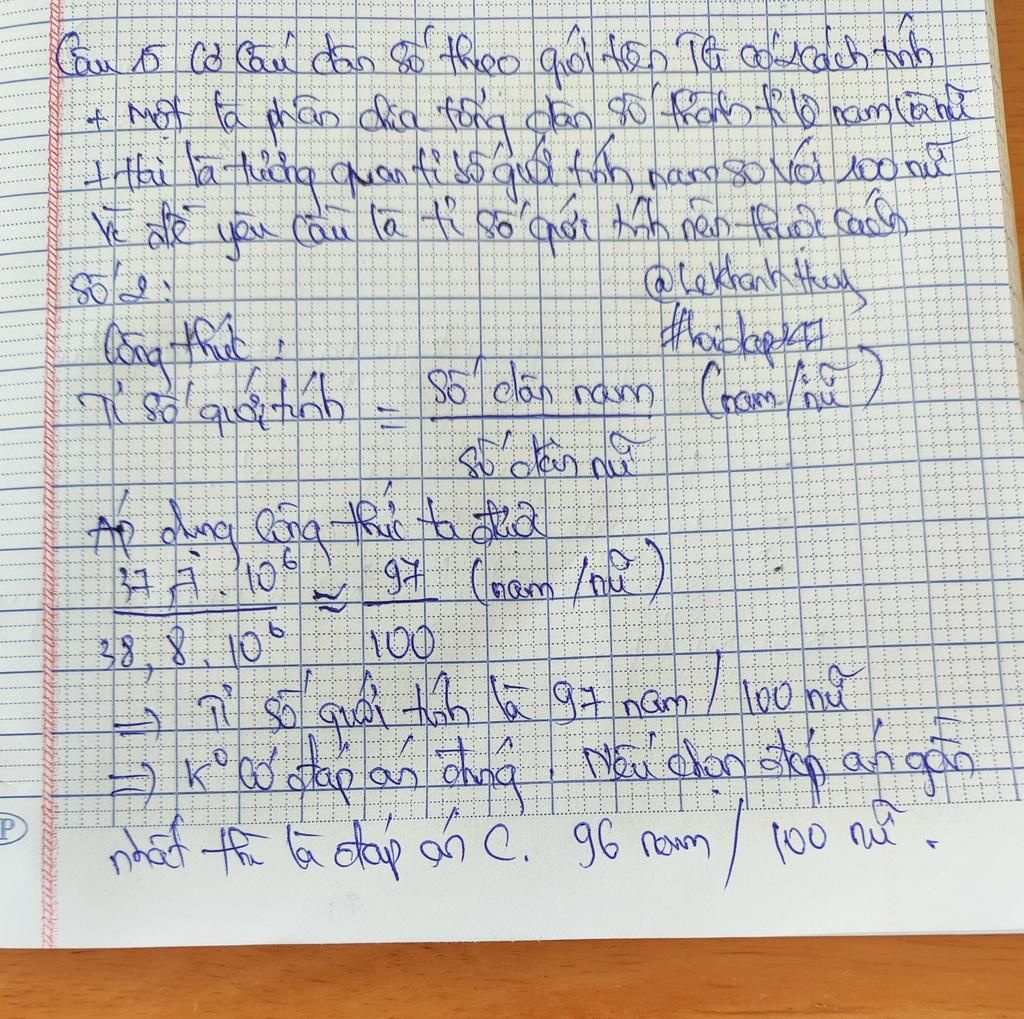 Câu 15 Cơ cấu dân số theo giới tính Ta có 2 cách tính
+ Một là phân chia tổng dân số thành tỉ lệ nam và nữ
+ Hai là tương quan tỉ số giới tính nam so với 100 nữ
Vì đề yêu cầu là tỉ số giới tính nên thuộc cách
số 2:
@lekhanhhuy
Công thức:
Tỉ số giới tính = số dân nam / số dân nữ (nam/nữ)
Áp dụng công thức ta được
37,7.10⁶ / 38,8.10⁶ ≈ 97 / 100 (nam/nữ)
=> Tỉ số giới tính là 97 nam / 100 nữ
=> K° có đáp án đúng. Nếu chọn đáp án gần
nhất thì là đáp án C. 96 nam / 100 nữ.